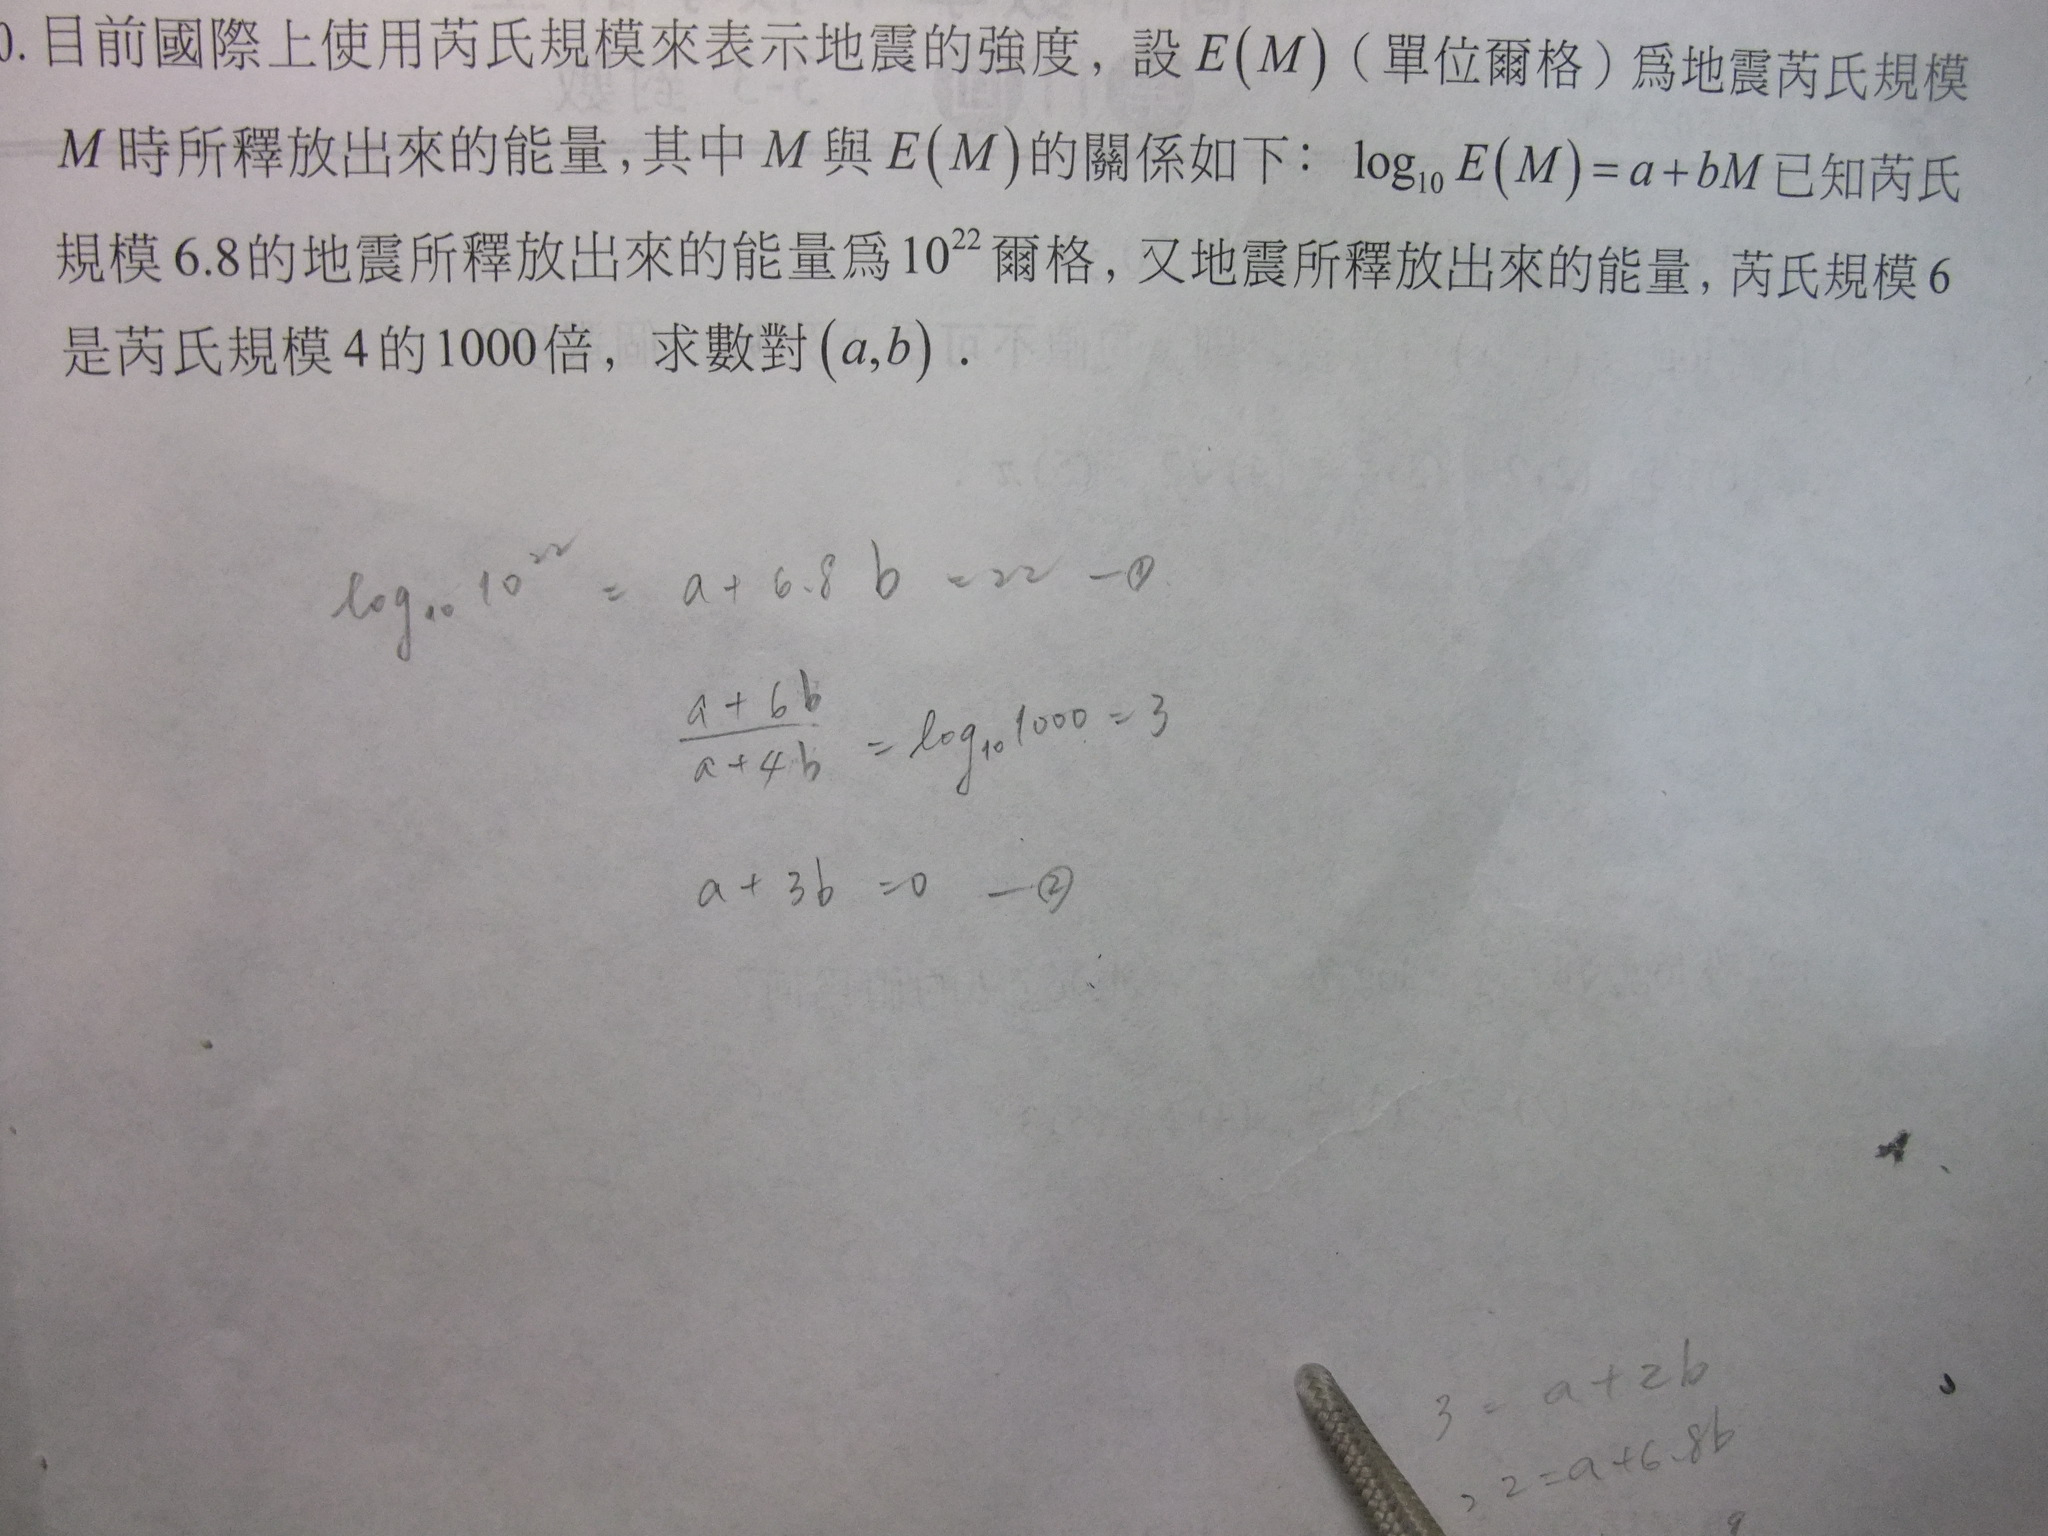 0. 目前國際上使用芮氏規模來表示地震的強度，設 E(M)（單位爾格）爲地震芮氏規模
M 時所釋放出來的能量，其中 M 與 E(M) 的關係如下： log₁₀ E(M) = a + bM 已知芮氏
規模 6.8 的地震所釋放出來的能量爲 10²² 爾格，又地震所釋放出來的能量，芮氏規模 6
是芮氏規模 4 的 1000 倍，求數對 (a,b)．
log₁₀ 10²² = a + 6.8 b = 22 —①
(a + 6b)/(a + 4b) = log₁₀ 1000 = 3
a + 3b = 0 —②
3 = a + 2b
22 = a + 6.8b